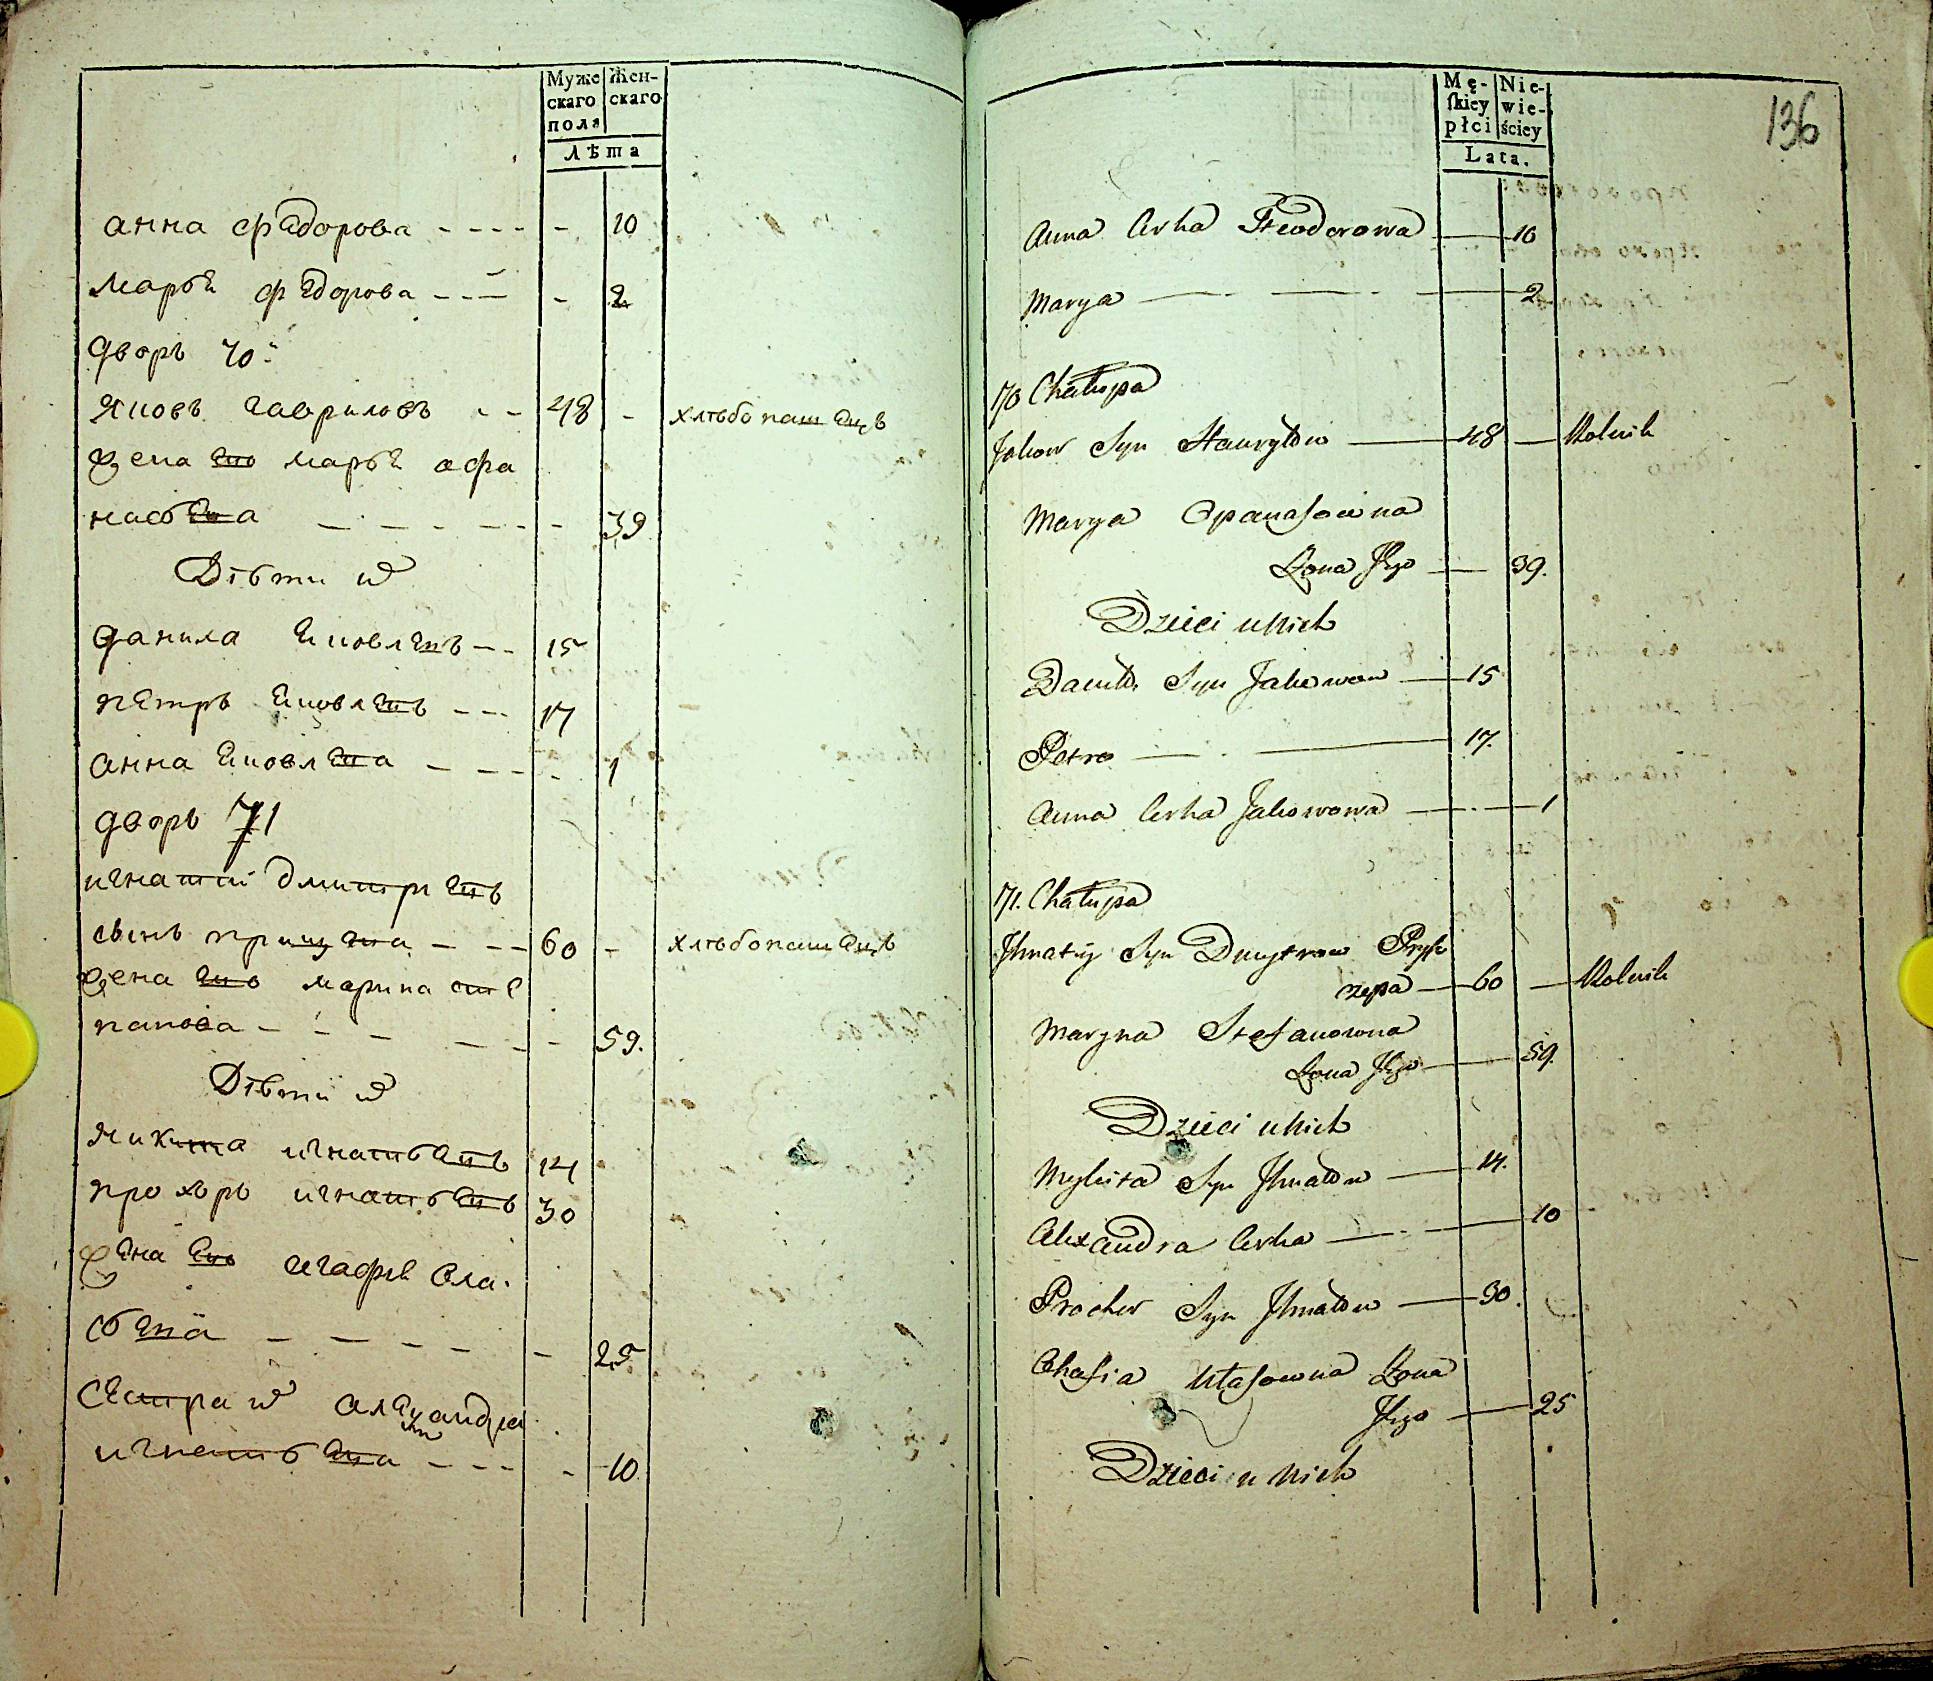 Муже
скаго
пола
Жен-
скаго
Лѣта
анна федорова - - - - - 10
марья федорова - - - - 2
дворъ 70й
яковъ гавриловъ - - 48 - хлѣбопашецъ
жена ево марья афа
насьева - - - - - - 39
Дѣти их
данила яковлевъ - - 15
петръ яковлевъ - - - 17
анна яковлева - - - - - 1
дворъ 71
игнатий дмитриевъ
сынъ - - - 60 - хлѣбопашецъ
жена ево марина сте
панова - - - - - - 59.
Дѣти их
никита игнатьевъ 14
прохоръ игнатьевъ 30
жена ево агафья вла.
сьева - - - - - 25
сестра их александра
игнатьева - - - - 10
136
Mę-
skiey
płci
Nie-
wie-
ściey
Lata.
Anna Corka Fteodorowa — 10
Marya — - — - — 2
70 Chałupa
Jakow Syn Hauryłow — 48 — Rolnik
Marya Opanasowna
Żona Jego — 39.
Dzieci u Nich
Daniło Syn Jakowow — 15
Petro — - — 17.
Anna Corka Jakowowa — - — 1
71. Chałupa
Ihnatiy Syn Dmytrow Pryp
— 60 — Rolnik
Maryna Stefanowna
Żona Jego — 59.
Dzieci u Nich
Mykita Syn Ihnatow — 14.
Alexandra Corka — - — 10
Prochor Syn Ihnatow — 30.
Ohafia Ułasowna Żona
Jego — 25
Dzieci u Nich